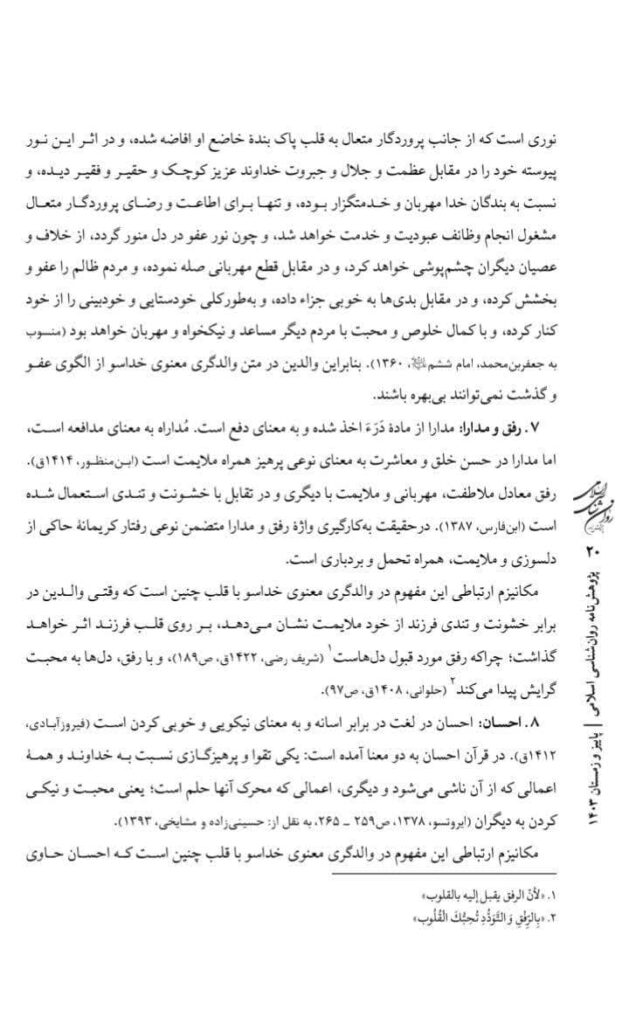 نوری است که از جانب پروردگار متعال به قلب پاک بندهٔ خاضع او افاضه شده، و در اثر این نور
پیوسته خود را در مقابل عظمت و جلال و جبروت خداوند عزیز کوچک و حقیر و فقیر دیده، و
نسبت به بندگان خدا مهربان و خدمتگزار بوده، و تنها برای اطاعت و رضای پروردگار متعال
مشغول انجام وظائف عبودیت و خدمت خواهد شد، و چون نور عفو در دل منور گردد، از خلاف و
عصیان دیگران چشم‌پوشی خواهد کرد، و در مقابل قطع مهربانی صله نموده، و مردم ظالم را عفو و
بخشش کرده، و در مقابل بدی‌ها به خوبی جزاء داده، و به‌طورکلی خودستایی و خودبینی را از خود
کنار کرده، و با کمال خلوص و محبت با مردم دیگر مساعد و نیکخواه و مهربان خواهد بود (منسوب
به جعفربن‌محمد، امام ششم، ۱۳۶۰). بنابراین والدین در متن والدگری معنوی خداسو از الگوی عفو
و گذشت نمی‌توانند بی‌بهره باشند.
۷. رفق و مدارا: مدارا از مادهٔ دَرَءَ اخذ شده و به معنای دفع است. مُداراه به معنای مدافعه است،
اما مدارا در حسن خلق و معاشرت به معنای نوعی پرهیز همراه ملایمت است (ابن‌منظور، ۱۴۱۴ق).
رفق معادل ملاطفت، مهربانی و ملایمت با دیگری و در تقابل با خشونت و تندی استعمال شده
است (ابن‌فارس، ۱۳۸۷). درحقیقت به‌کارگیری واژهٔ رفق و مدارا متضمن نوعی رفتار کریمانهٔ حاکی از
دلسوزی و ملایمت، همراه تحمل و بردباری است.
مکانیزم ارتباطی این مفهوم در والدگری معنوی خداسو با قلب چنین است که وقتی والدین در
برابر خشونت و تندی فرزند از خود ملایمت نشان می‌دهد، بر روی قلب فرزند اثر خواهد
گذاشت؛ چراکه رفق مورد قبول دل‌هاست۱ (شریف رضی، ۱۴۲۲ق، ص۱۸۹)، و با رفق، دل‌ها به محبت
گرایش پیدا می‌کند۲ (حلوانی، ۱۴۰۸ق، ص۹۷).
۸. احسان: احسان در لغت در برابر اسانه و به معنای نیکویی و خوبی کردن است (فیروزآبادی،
۱۴۱۲ق). در قرآن احسان به دو معنا آمده است: یکی تقوا و پرهیزگازی نسبت به خداوند و همهٔ
اعمالی که از آن ناشی می‌شود و دیگری، اعمالی که محرک آنها حلم است؛ یعنی محبت و نیکی
کردن به دیگران (ایروتسو، ۱۳۷۸، ص۲۵۹ ـ ۲۶۵، به نقل از: حسینی‌زاده و مشایخی، ۱۳۹۳).
مکانیزم ارتباطی این مفهوم در والدگری معنوی خداسو با قلب چنین است که احسان حاوی
۱. «لأنّ الرفق یقبل إلیه بالقلوب»
۲. «بِالرِّفْقِ وَ التَّوَدُّدِ تُحِبُّكَ الْقُلُوب»
۲۰ پژوهش‌نامه روان‌شناسی اسلامی | پاییز و زمستان ۱۴۰۳